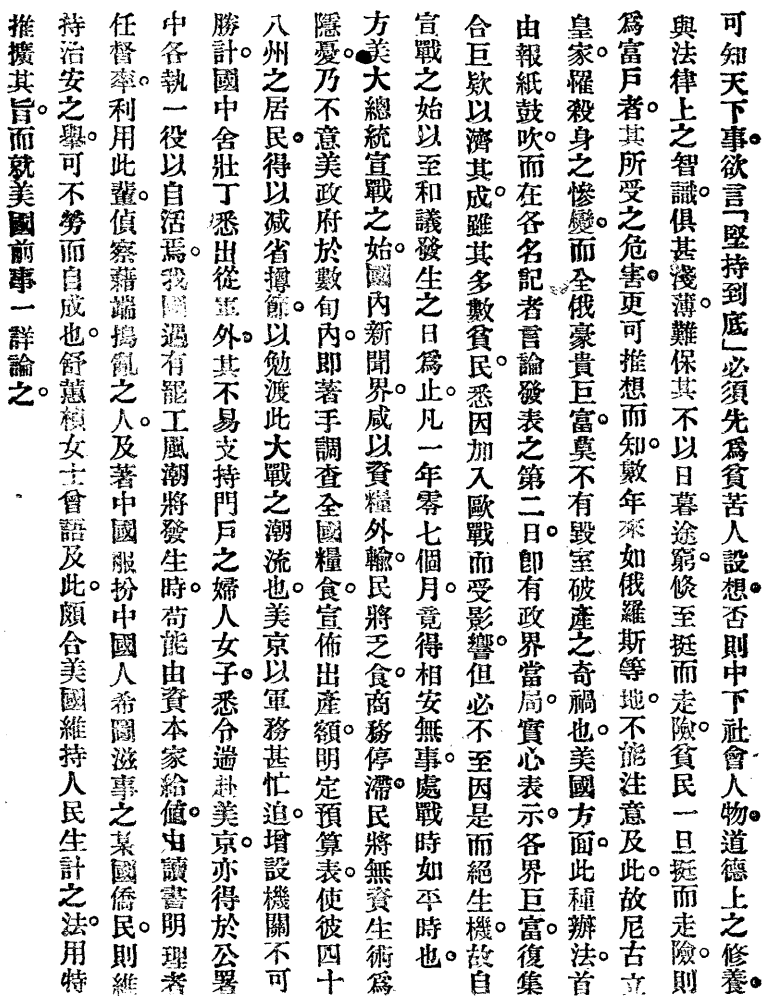 可知天下事。欲言「堅持到底」必須先爲貧苦人設想。否則中下社會人物。道德上之修養。
與法律上之智識。俱甚淺薄。難保其不以日暮途窮。倐至挺而走險。貧民一旦挺而走險。則
爲富戶者。其所受之危害。更可推想而知。數年來如俄羅斯等地。不能注意及此。故尼古立
皇家。懼殺身之慘變。而全俄豪貴巨富。莫不有毀室破產之奇禍也。美國方面。此種辦法。首
由報紙鼓吹。而在各名記者言論發表之第二日。卽有政界當局。實心表示。各界巨富。復集
合巨欵以濟其成。雖其多數貧民。悉因加入歐戰而受影響。但必不至因是而絕生機。故自
宣戰之始以至和議發生之日爲止。凡一年零七個月。竟得相安無事。處戰時如平時也。
方美大總統宣戰之始。國內新聞界。咸以資糧外輸。民將乏食。商務停滯。民將無資生術爲
隱憂。乃不意美政府於數旬內。卽著手調查全國糧食。宣佈出產額。明定預算表。使彼四十
八州之居民。得以減省撙節。以勉渡此大戰之潮流也。美京以軍務甚忙迫。增設機關不可
勝計。國中舍壯丁悉出從軍外。其不易支持門戶之婦人女子。悉令遄赴美京。亦得於公署
中各執一役以自活焉。我國遇有罷工風潮將發生時。苟能由資本家給値。由讀書明理者
任督率。利用此輩。偵察藉端搗亂之人。及著中國服扮中國人希圖滋事之某國僑民。則維
持治安之舉。可不勞而自成也。舒蕙楨女士曾語及此。頗合美國維持人民生計之法。用特
推擴其旨。而就美國前事一詳論之。